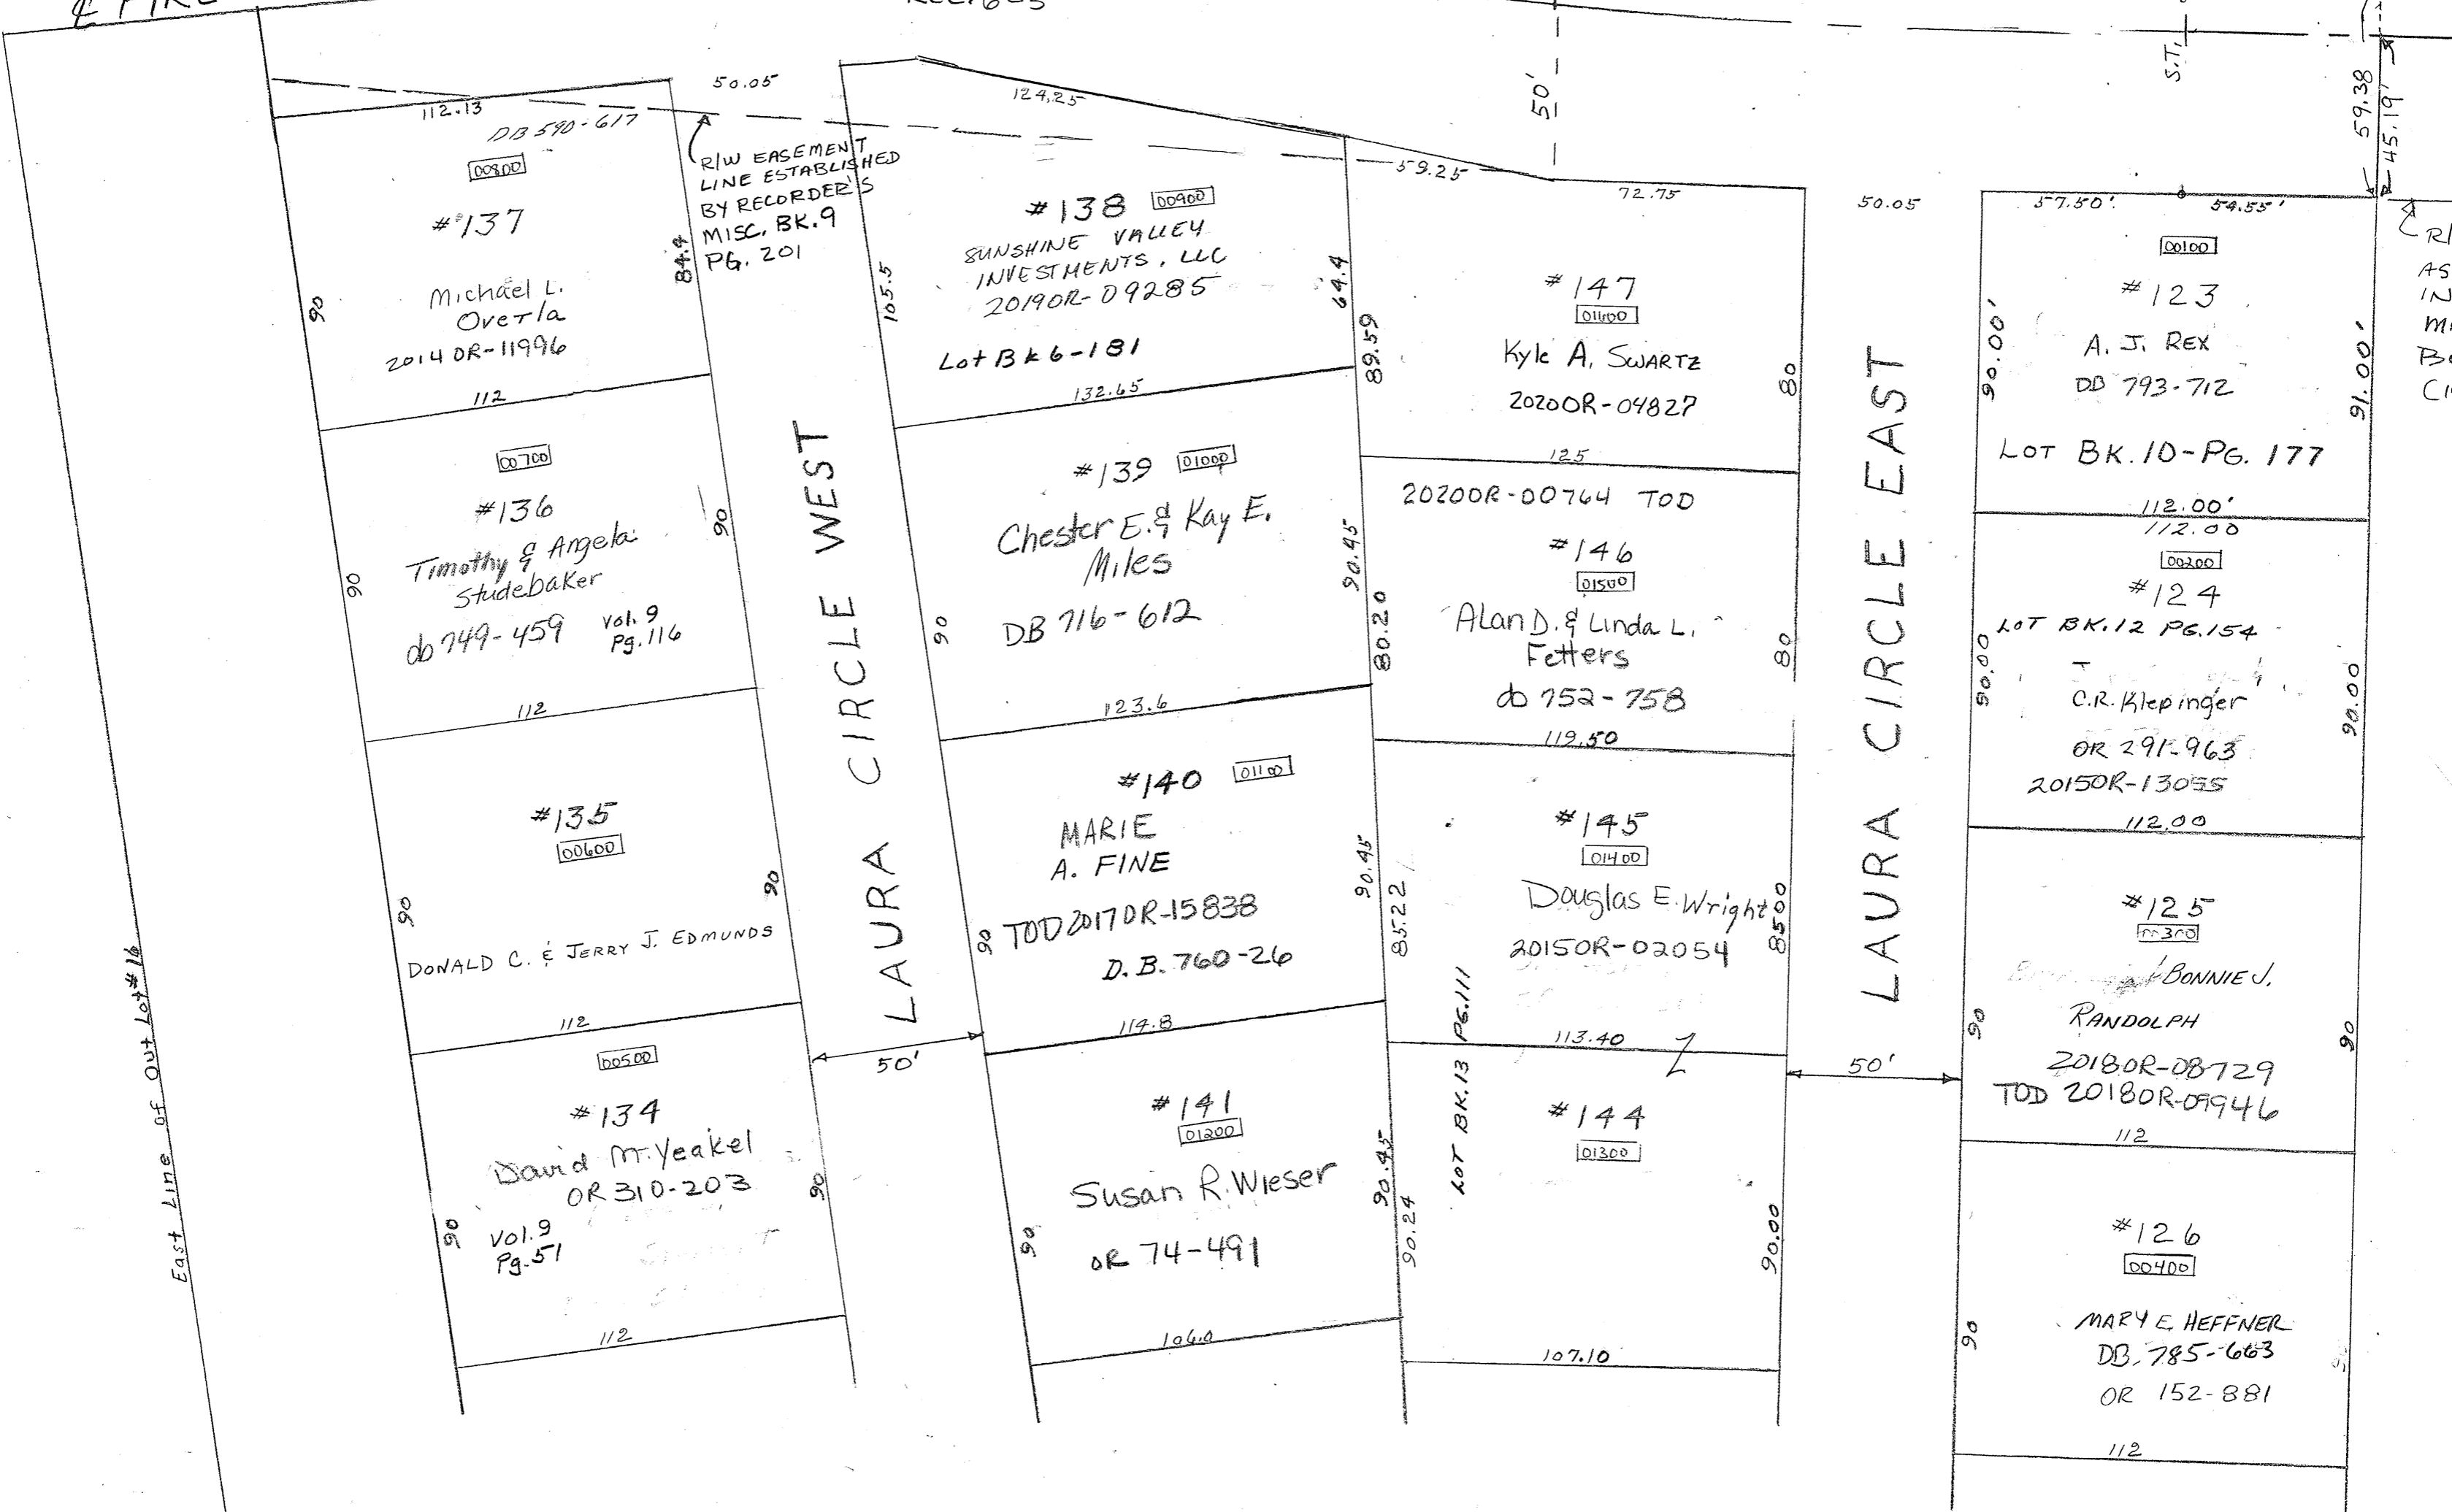 50.05
112.13
DB 590-617
00800
#137
Michael L.
Overla
2014 OR-11996
90
84.4
112
R/W EASEMENT
LINE ESTABLISHED
BY RECORDER'S
MISC. BK. 9
PG. 201
00700
#136
Timothy & Angela
Studebaker
db 749-459
Vol. 9
Pg. 116
90
90
112
#135
00600
DONALD C. & JERRY J. EDMUNDS
90
90
112
00500
#134
David M. Yeakel
OR 310-203
Vol. 9
Pg. 51
90
90
112
East Line of Out Lot #16
LAURA CIRCLE WEST
50'
124.25
#138 00900
SUNSHINE VALLEY
INVESTMENTS, LLC
2019OR-09285
Lot Bk 6-181
105.5
64.4
132.65
#139 01000
Chester E. & Kay E.
Miles
DB 716-612
90
90.45
123.6
#140 01100
MARIE
A. FINE
TOD 2017OR-15838
D.B. 760-26
90
90.45
114.8
#141
01200
Susan R. Wieser
OR 74-491
90
90.45
106.0
50'
59.25
72.75
#147
01600
Kyle A. SWARTZ
2020OR-04827
89.59
80
125
2020OR-00764 TOD
#146
01500
Alan D. & Linda L.
Fetters
db 752-758
80.20
80
119.50
#145
01400
Douglas E. Wright
2015OR-02054
85.22
8500
113.40
LOT BK. 13 PG. 111
#144
01300
90.24
90.00
107.10
LAURA CIRCLE EAST
50.05
50'
S.T.
59.38
45.19'
57.50'
54.55'
00100
#123
A. J. REX
DB 793-712
LOT BK. 10-PG. 177
90.00'
91.00'
112.00'
112.00
00200
#124
LOT BK. 12 PG. 154
C.R. Klepinger
OR 291-963
2015OR-13055
90.00
90.00
112.00
#125
00300
BONNIE J.
RANDOLPH
2018OR-08729
TOD 2018OR-09946
90
90
112
#126
00400
MARY E. HEFFNER
DB. 785-663
OR 152-881
90
112